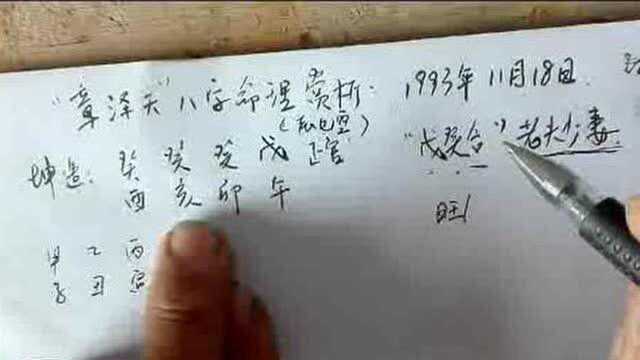 "章泽天"八字命理赏析: 1993年11月18日
坤造: 癸 癸 癸 戊 正官
酉 亥 卯 午
"戊癸合" 老夫少妻
旺
甲 乙 丙
子 丑 寅